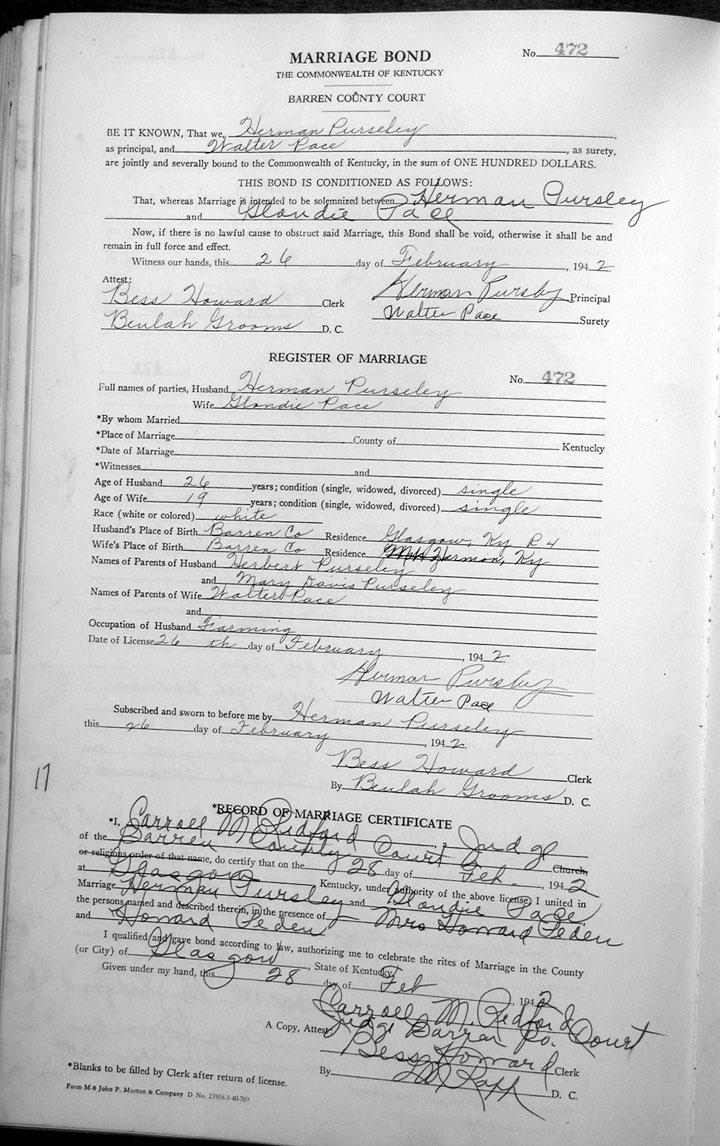 MARRIAGE BOND
No. 472
THE COMMONWEALTH OF KENTUCKY
BARREN COUNTY COURT
BE IT KNOWN, That we, Herman Purseley,
as principal, and Walter Pace, as surety,
are jointly and severally bound to the Commonwealth of Kentucky, in the sum of ONE HUNDRED DOLLARS.
THIS BOND IS CONDITIONED AS FOLLOWS:
That, whereas Marriage is intended to be solemnized between Herman Pursley
and Glondie Pace
Now, if there is no lawful cause to obstruct said Marriage, this Bond shall be void, otherwise it shall be and
remain in full force and effect.
Witness our hands, this 26 day of February, 1942
Attest:
Bess Howard Clerk Herman Pursley Principal
Beulah Grooms D. C. Walter Pace Surety
REGISTER OF MARRIAGE
No. 472
Full names of parties, Husband Herman Purseley
Wife Glondie Pace
*By whom Married
*Place of Marriage County of Kentucky
*Date of Marriage
*Witnesses and
Age of Husband 26 years; condition (single, widowed, divorced) single
Age of Wife 19 years; condition (single, widowed, divorced) single
Race (white or colored) white
Husband's Place of Birth Barren Co Residence Glasgow, Ky R 4
Wife's Place of Birth Barren Co Residence Hermon, Ky
Names of Parents of Husband Herbert Purseley
and Mary Davis Purseley
Names of Parents of Wife Walter Pace
and
Occupation of Husband Farming
Date of License 26 th day of February, 1942
Herman Pursley
Walter Pace
Subscribed and sworn to before me by Herman Purseley
this 26 day of February, 1942
Bess Howard Clerk
By Beulah Grooms D. C.
17
*RECORD OF MARRIAGE CERTIFICATE
*I, Carroll M. Redford, Judge
of the Barren County Court Church,
or religious order of that name, do certify that on the 28 day of Feb. 1942
at Glasgow Kentucky, under authority of the above license, I united in
Marriage Herman Pursley and Glondie Pace
the persons named and described therein, in the presence of Mrs Howard Peden
and Howard Peden
I qualified and gave bond according to law, authorizing me to celebrate the rites of Marriage in the County
(or City) of Glasgow, State of Kentucky.
Given under my hand, this 28 day of Feb, 1942
Carroll M. Redford
Judge Barren Co. Court
A Copy, Attest: Bess Howard Clerk
By D. C.
*Blanks to be filled by Clerk after return of license.
Form M-8 John P. Morton & Company D No. 25956-3-40-769